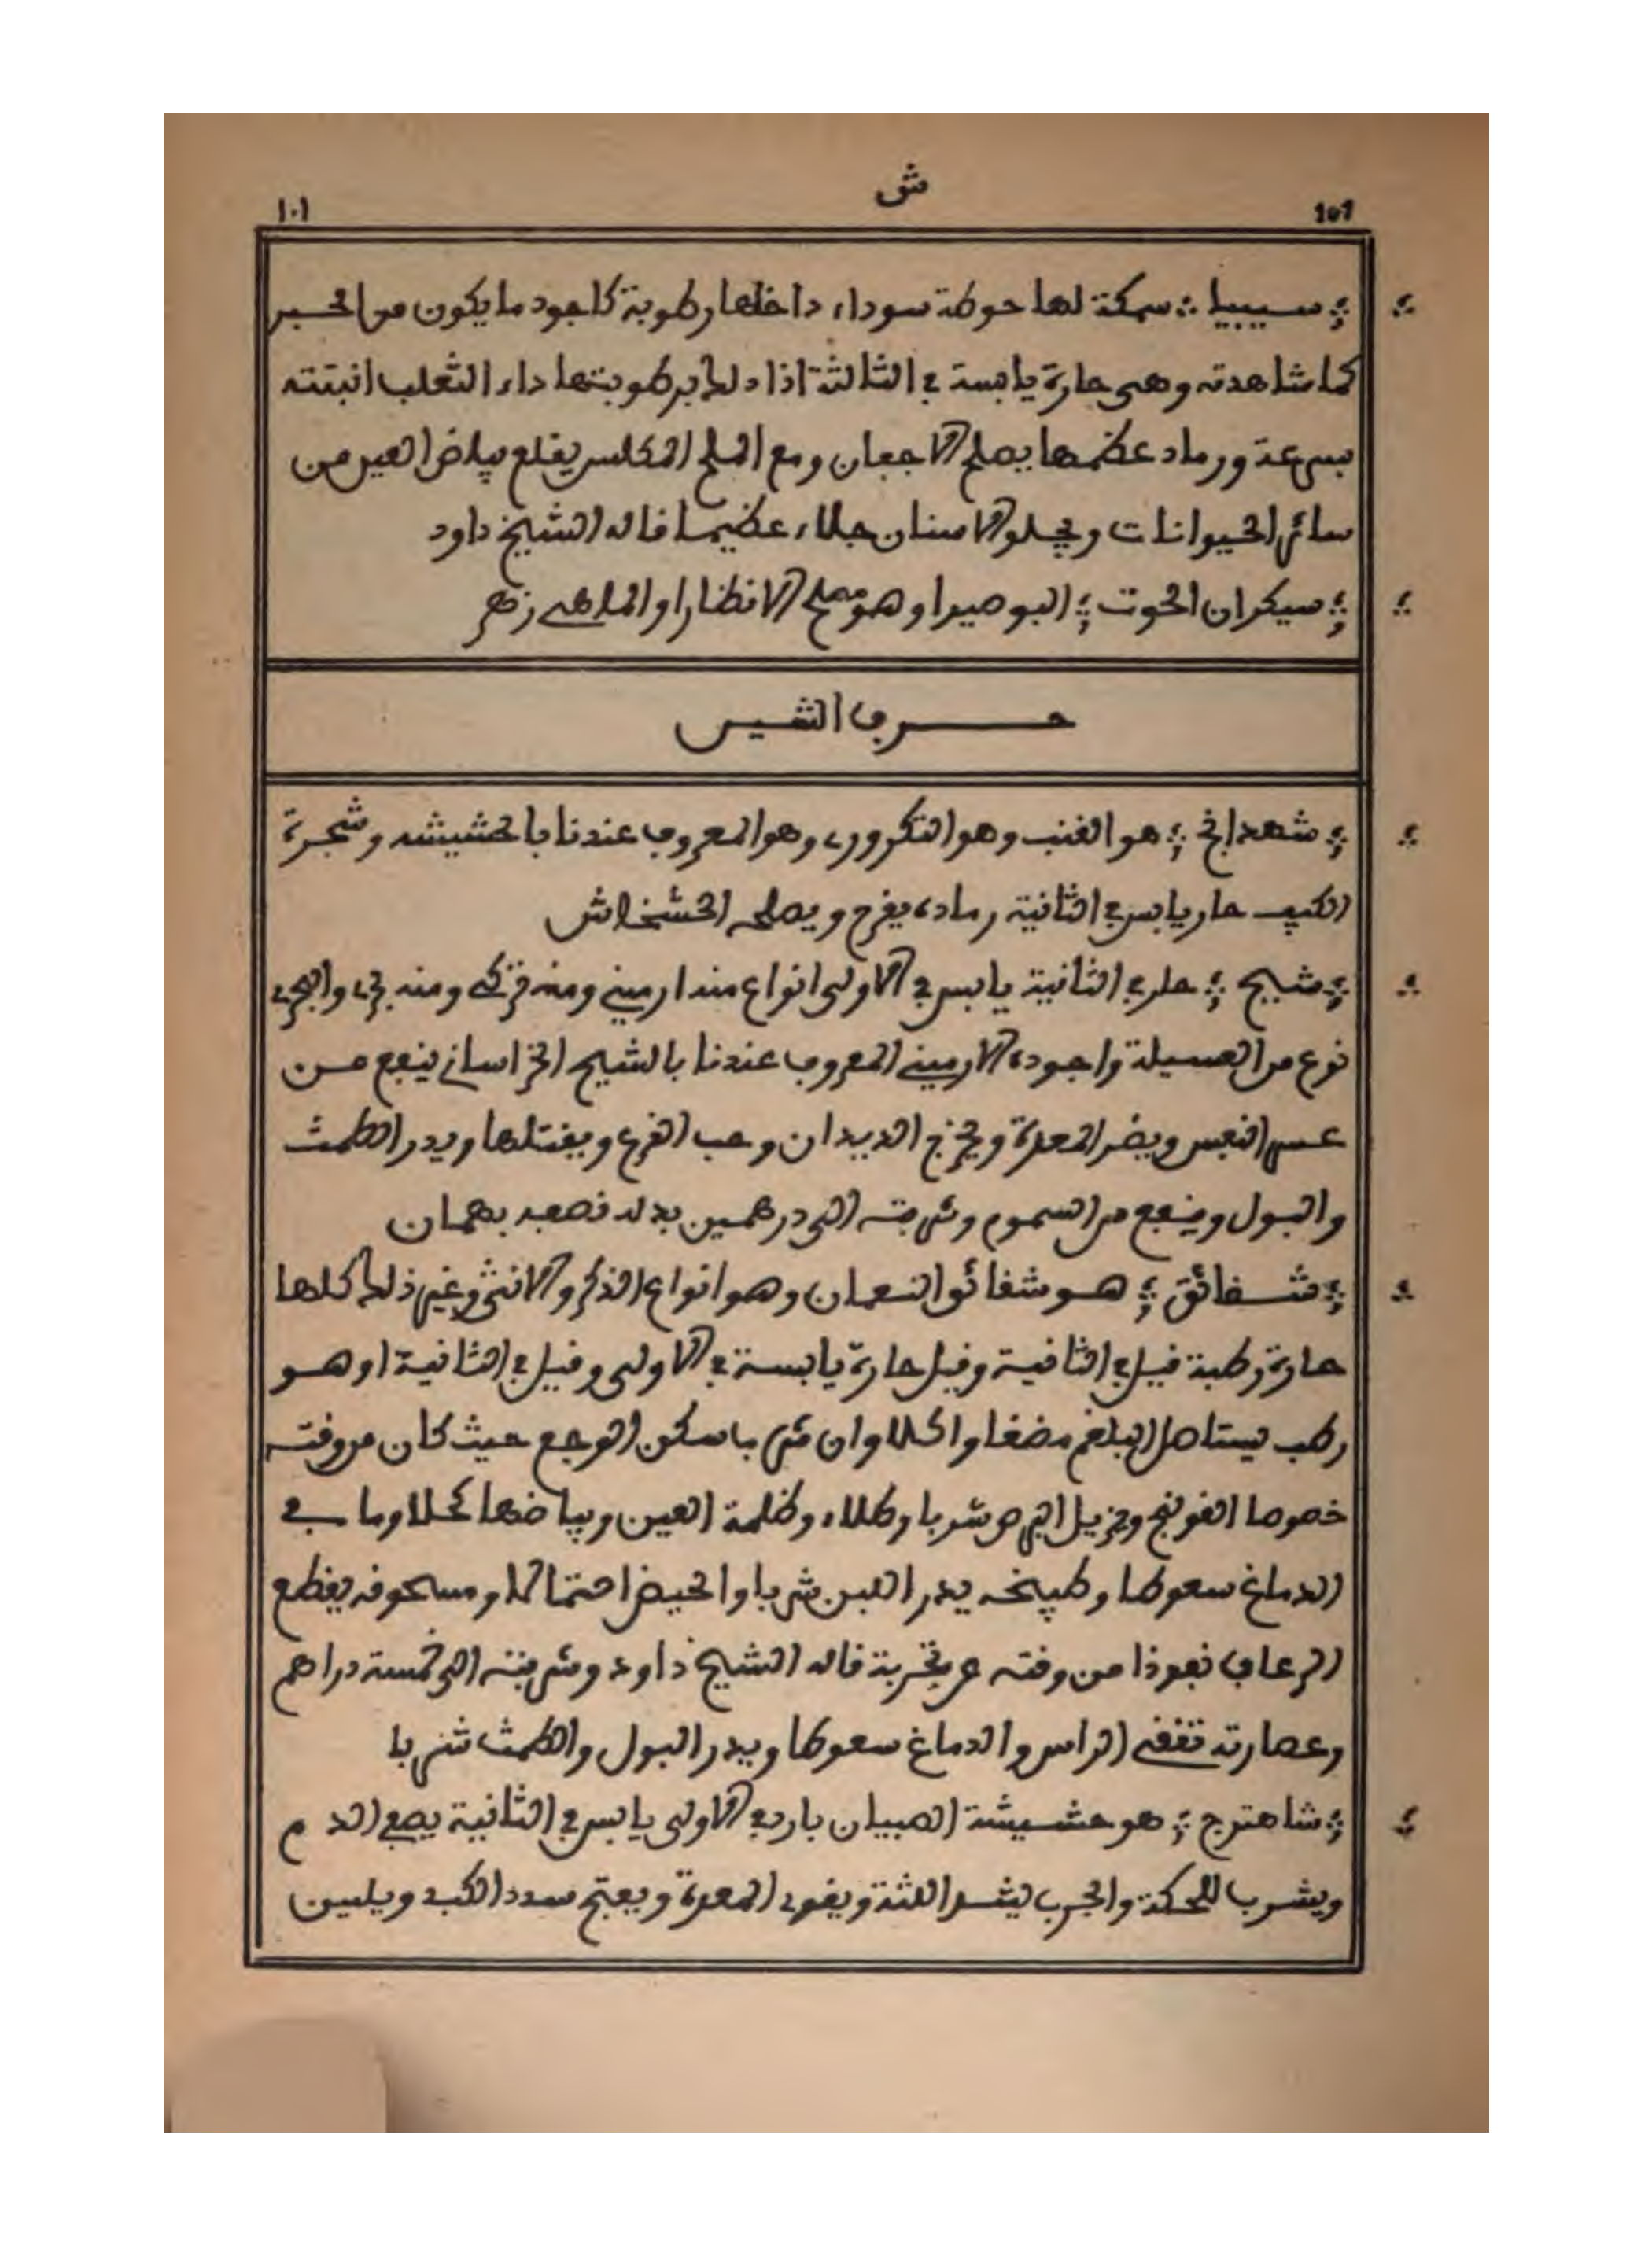 ش
١٠١
سيبيا سمكة لها حوطة سوداء داخلها رطوبة كاجود ما يكون من الحبر
كما شاهدته وهى حارة يابسة في الثالثة اذا دلك برطوبتها داء الثعلب انبتته
بسرعة ورماد عظمها يصلح الاجفان ومع الملح المكلس يقلع بياض العين من
سائر الحيوانات ويجلو الاسنان جلاء عظيما قاله الشيخ داود
سيكران الحوت البوصيرا وهو مصلح الانظار او الماهي زهر
حرف الشين
شهدانج هو القنب وهو التكروري وهو المعروف عندنا بالحشيشه وشجرة
الكيف حار يابس في الثانية رماده يفرح ويصلحه الخشخاش
شيح حار في الثانية يابس في الاولى انواع منه ارميني ومنه تركي ومنه بري والبري
نوع من العسيلة واجوده الارميني المعروف عندنا بالشيح الخراساني ينفع من
عسر النفس ويضر المعدة ويخرج الديدان وحب القرع ويقتلها ويدر الطمث
والبول وينفع من السموم وشربته الى درهمين بدله نصفه بهمان
شقائق هو شقائق النعمان وهو انواع الذكر والانثى وغير ذلك كلها
حارة رطبة قيل في الثانية وقيل حارة يابسة في الاولى وقيل في الثانية او هو
رطب يستاصل البلغم مضغا واكلا وان شربا سكن الوجع حيث كان من وقته
خصوصا القولنج ويزيل البرص شربا وطلاء وظلمة العين وبياضها كحلا وما في
الدماغ سعوطا وطبيخه يدر اللبن شربا والحيض احتمالا ومسحوقه يقطع
الرعاف نفوذا من وقته عن تجربة قاله الشيخ داود وشربته الى خمسة دراهم
وعصارته تنقي الراس والدماغ سعوطا ويدر البول والطمث شربا
شاهترج هو حشيشة الصبيان بارد في الاولى يابس في الثانية يصفي الدم
ويشرب للحكة والجرب يشد اللثة ويقوي المعدة ويفتح سدد الكبد ويلين